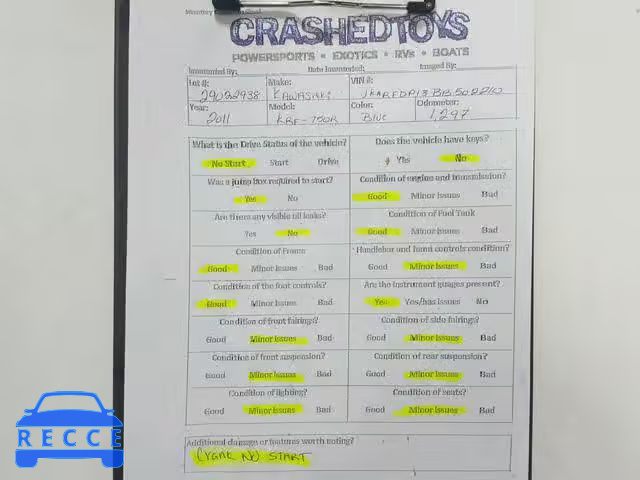 CRASHEDTOYS
POWERSPORTS • EXOTICS • RVs • BOATS
Inventoried By: Date Inventoried: Imaged By:
Lot #: Make: VIN #:
29022938 KAWASAKI
Year: Model: Color: Odometer:
2011 KRF-750R Blue 1,297
What is the Drive Status of the vehicle? Does the vehicle have keys?
No Start Start Drive Yes No
Was a jump box required to start? Condition of engine and transmission?
Yes No Good Minor Issues Bad
Are there any visible oil leaks? Condition of Fuel Tank
Yes No Good Minor Issues Bad
Condition of Frame Handlebar and hand controls condition?
Good Minor Issues Bad Good Minor Issues Bad
Condition of the foot controls? Are the instrument gauges present?
Good Minor Issues Bad Yes Yes/has issues No
Condition of front fairings? Condition of side fairings?
Good Minor Issues Bad Good Minor Issues Bad
Condition of front suspension? Condition of rear suspension?
Good Minor Issues Bad Good Minor Issues Bad
Condition of lighting? Condition of seats?
Good Minor Issues Bad Good Minor Issues Bad
Additional damage or features worth noting?
Crank NO START
RECCE